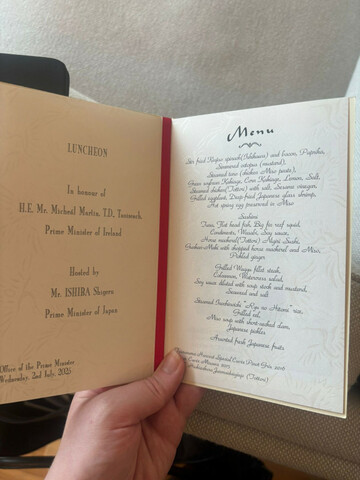 LUNCHEON
In honour of
H.E. Mr. Micheál Martin, T.D., Taoiseach,
Prime Minister of Ireland
Hosted by
Mr. ISHIBA Shigeru
Prime Minister of Japan
Office of the Prime Minister
Wednesday, 2nd July, 2025
Menu
Stir fried
and bacon, Paprika,
Simmered octopus (mustard),
Steamed taro (chicken Miso paste),
Lemon, Salt,
Steamed chicken (Tottori) with salt, Sesame vinegar,
Grilled eggplant, Deep-fried Japanese glass shrimp,
Hot spring egg preserved in Miso
Sashimi
Tuna, Flat head fish, Big fin reef squid,
Condiments, Wasabi, Soy sauce,
Horse mackerel (Tottori) Nigiri Sushi,
with chopped horse mackerel and Miso,
Pickled ginger
Grilled Wagyu fillet steak,
Edamame, Watercress salad,
Soy sauce diluted with soup stock and mustard,
Seaweed and salt
Steamed
rice,
Grilled eel,
Miso soup with short-necked clam,
Japanese pickles
Assorted fresh Japanese fruits
Special Cuvée
(Tottori)